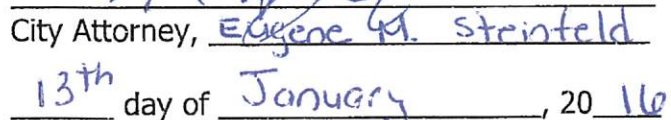 City Attorney, Eugene M. Steinfeld
13th day of January, 2016